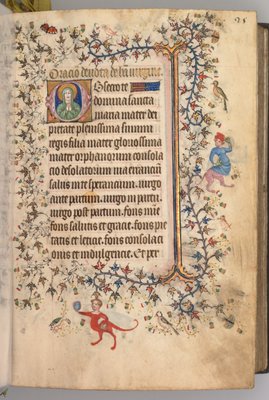 Oracio devota de b̄a virgine
Obsecro te
domina sancta
maria mater dei
pietate plenissima summi
regis filia mater gloriosissima
mater orphanorum consola
cio desolatorum via errancium
salus in te sperancium. virgo
ante partum. virgo in partu.
virgo post partum. fons mīe
fons salutis et gracie. fons pie
tatis et leticie. fons consolaci
onis et indulgencie. Et per